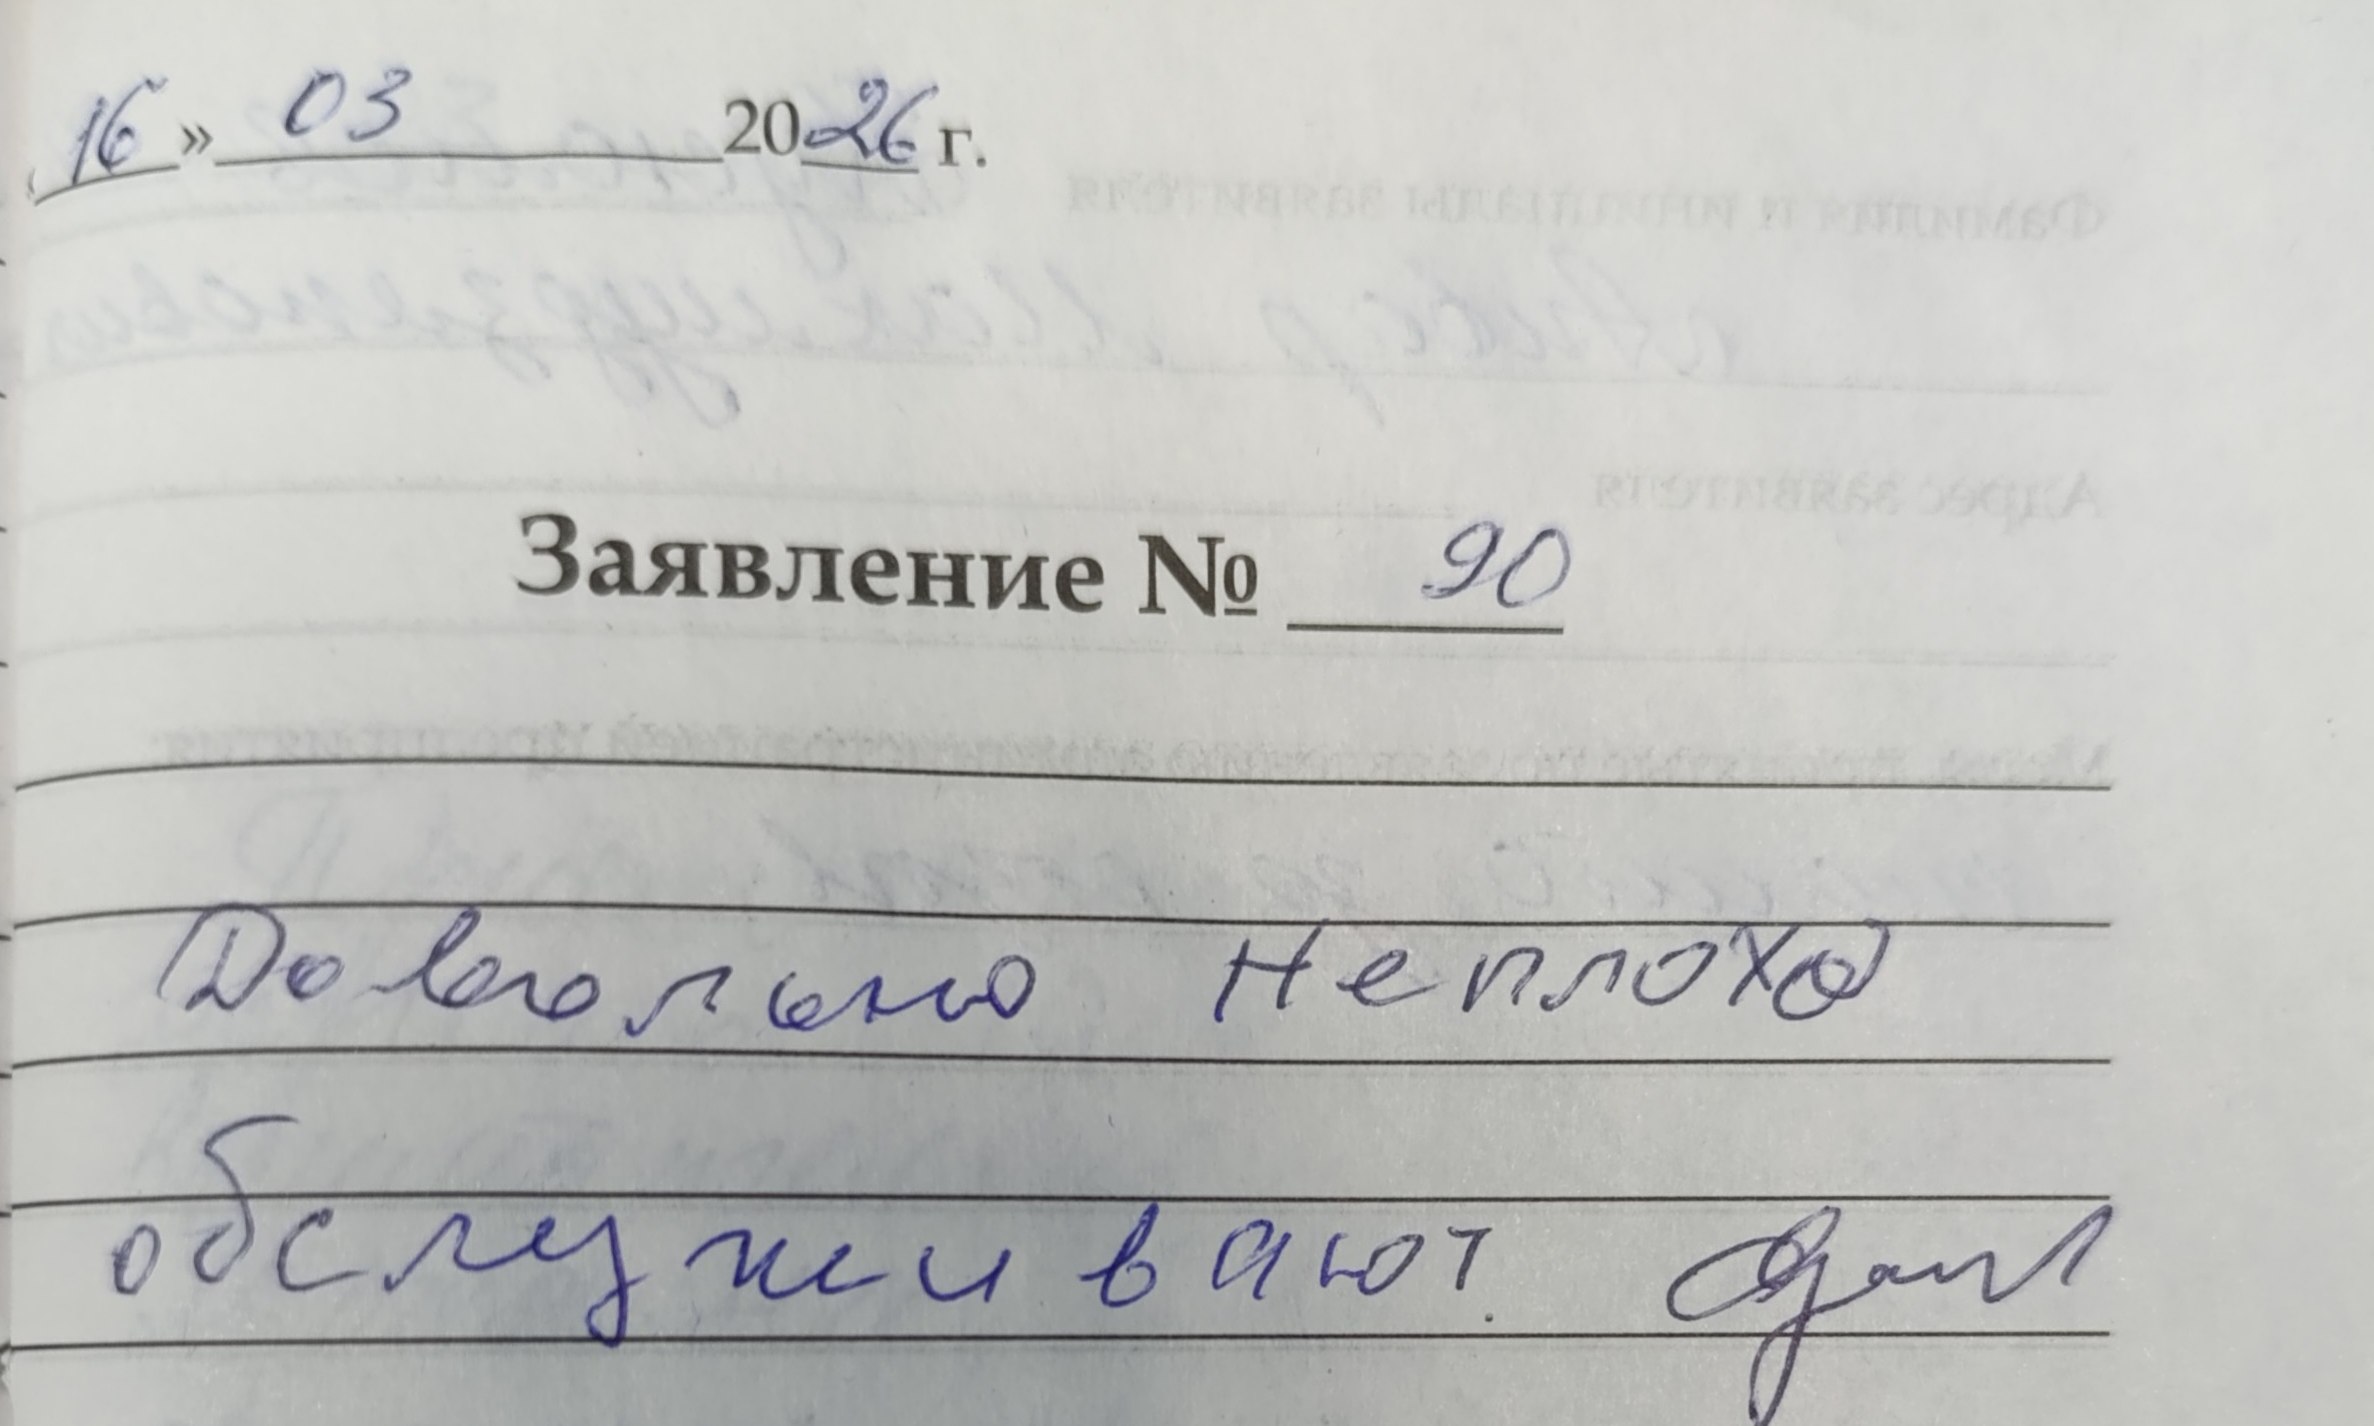 16» 03 2026 г.
Заявление № 90
Довольно неплохо
обслуживают.